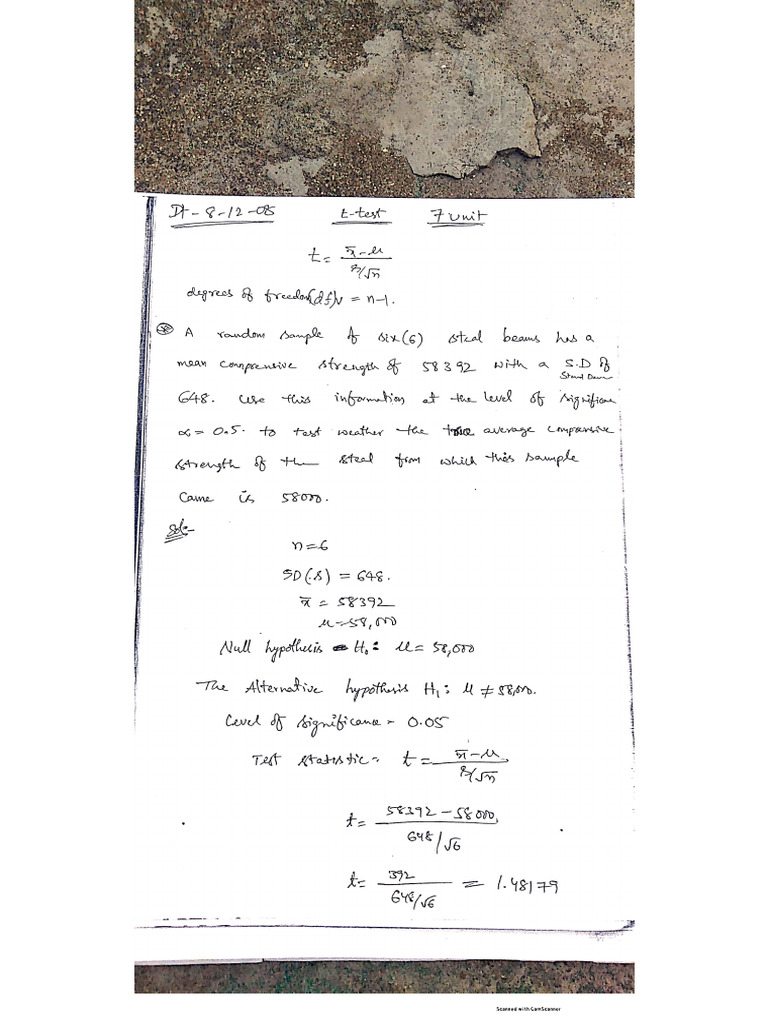 Dt - 8-12-08 t-test 7 unit
t = x̄-μ
s/√n
degrees of freedom(df)ν = n-1.
A random sample of six(6) steal beams has a
mean comprensive strength of 58392 with a S.D of
648. Use this information at the level of significane
α = 0.5. to test weather the true average compresive
strength of the steal from which this sample
Came is 58000.
Sol:-
n=6
SD(s) = 648.
x̄ = 58392
μ=58,000
Null hypothesis H₀: μ = 58,000
The Alternative hypothesis H₁: μ ≠ 58,000.
Level of significance = 0.05
Test statistic = t = x̄-μ
s/√n
t = 58392 - 58000
648/√6
t = 392
648/√6 = 1.48179
Scanned with CamScanner